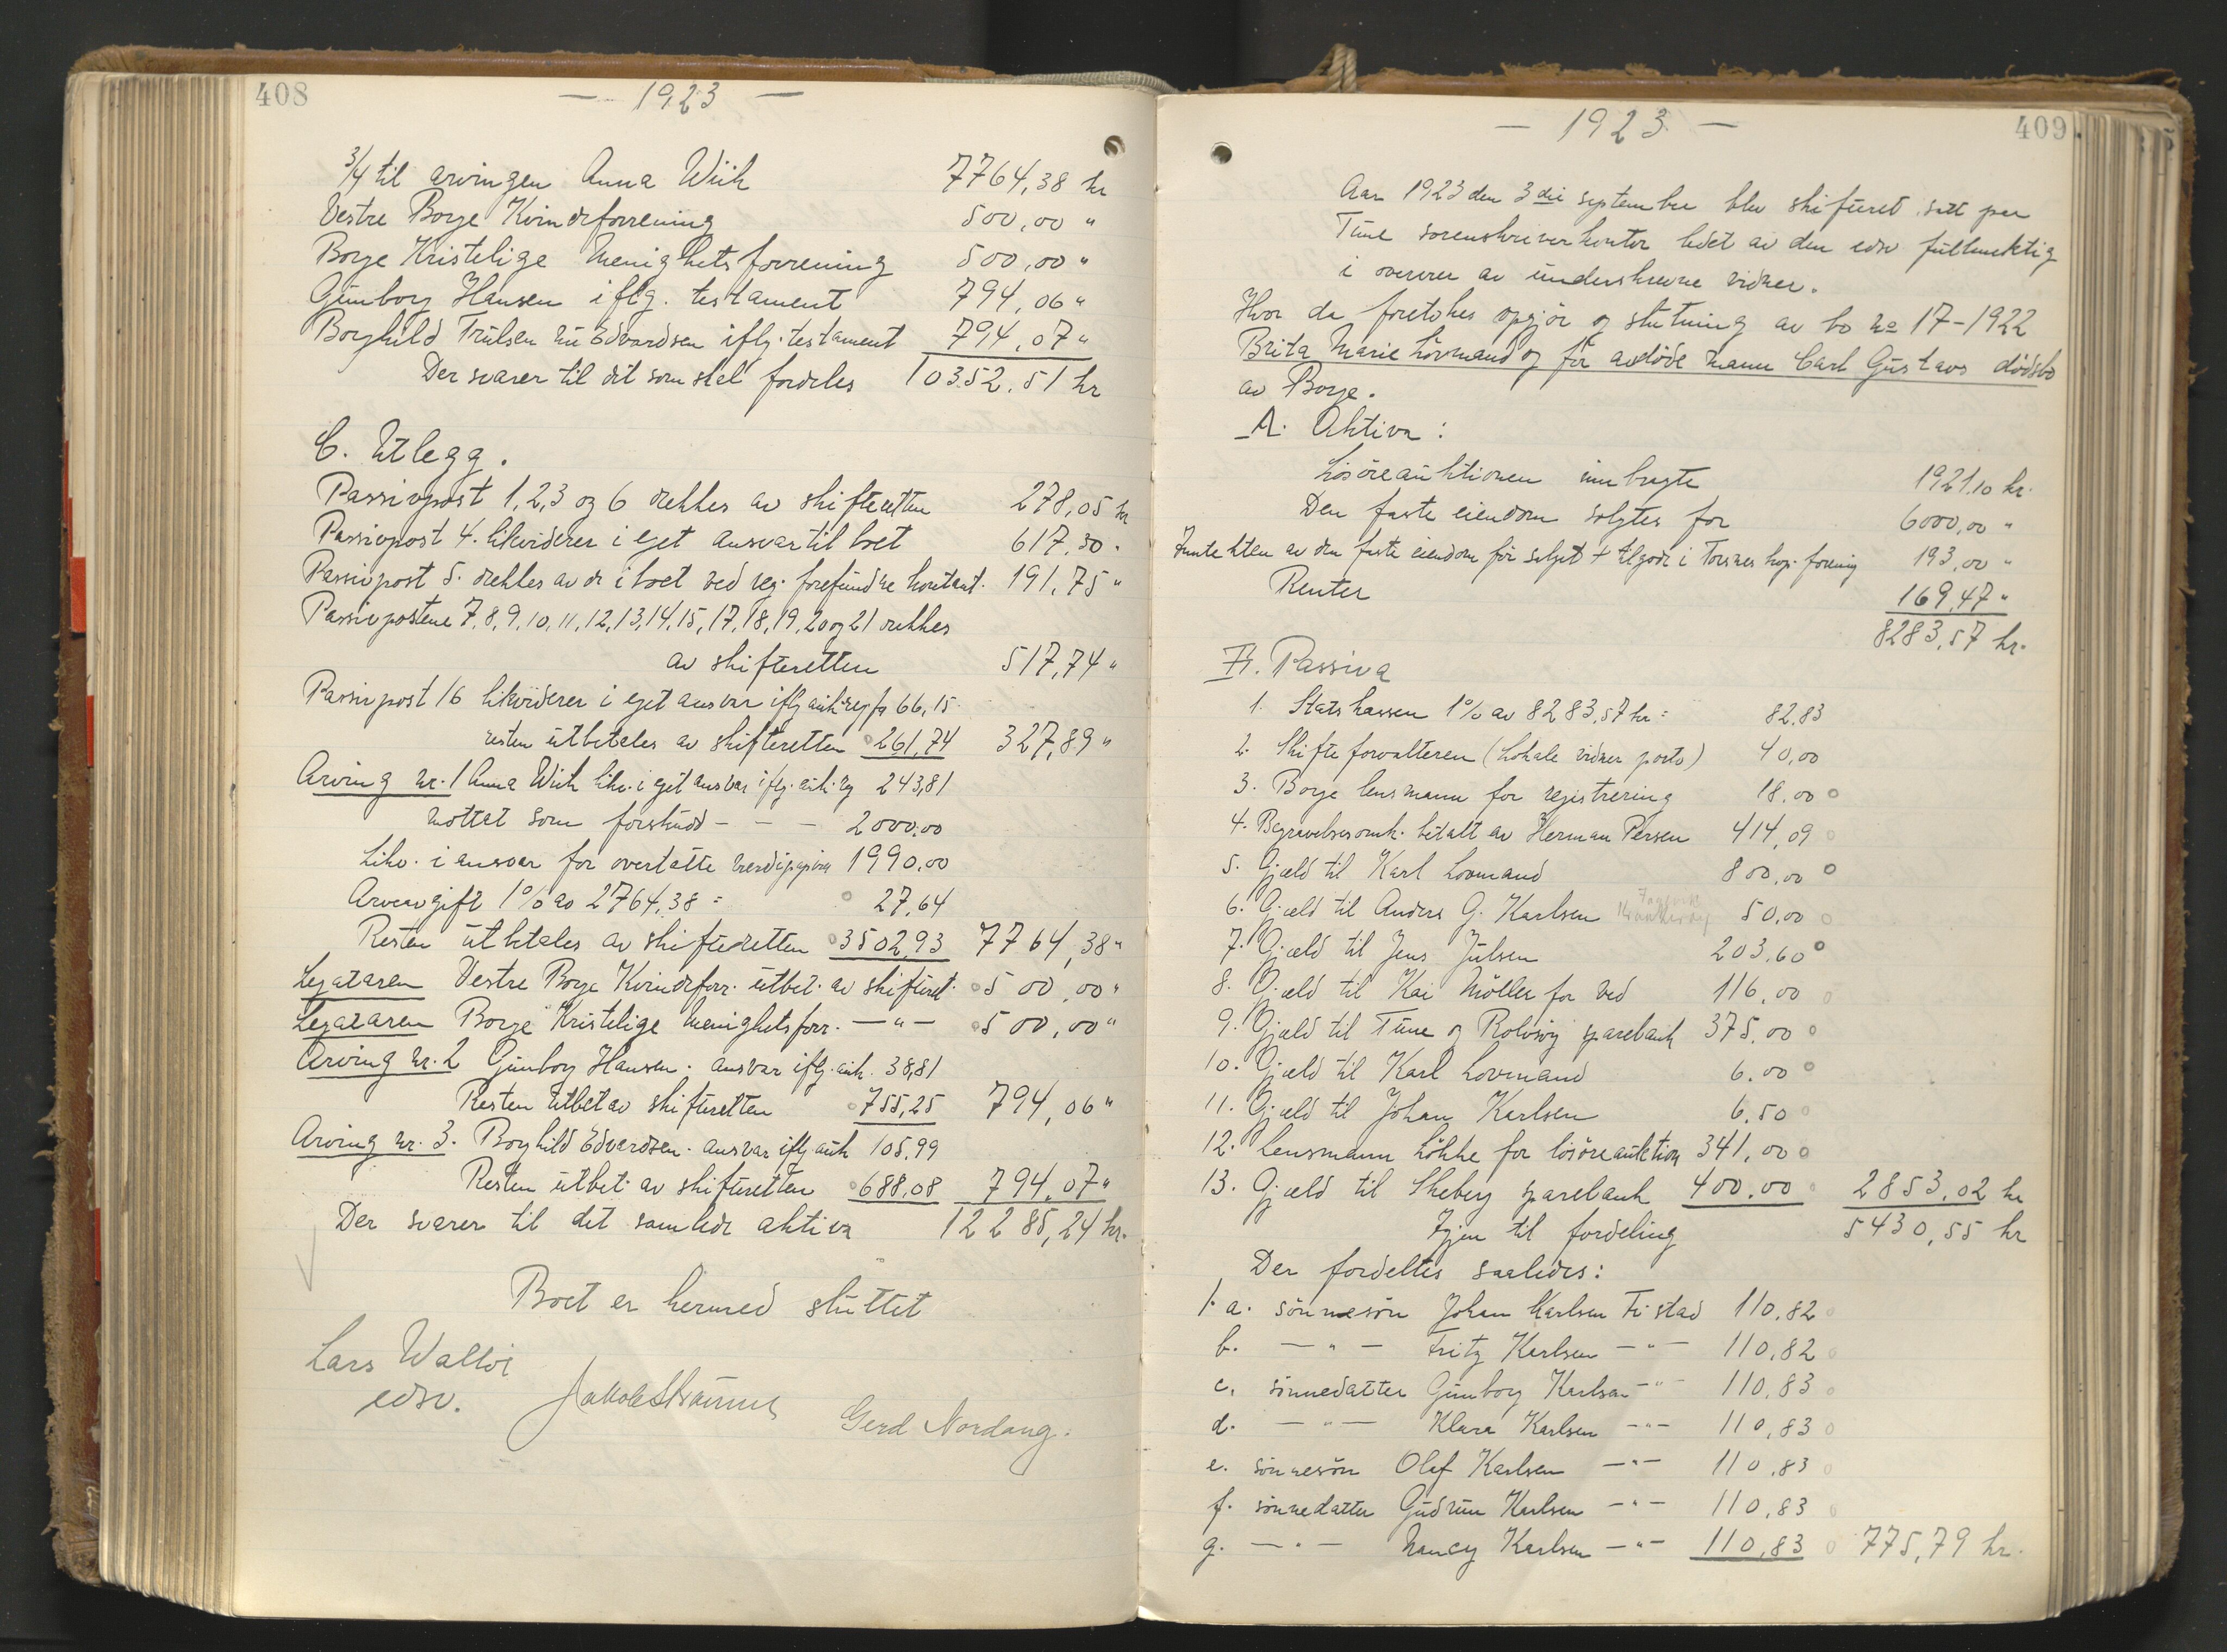 408
— 1923 —
3/4 til arvingen Anna Wiik 7764,38 kr
Vestre Borge Kvindeforrening 500,00 "
Borge Kristelige Menighetsforrening 500,00 "
Gunborg Hansen iflg. testament 794,06 "
Borghild Trulsen nu Edvardsen iflg. testament 794,07 "
Der svarer til det som skal fordeles 10352.51 kr
C. Utlegg.
Passivpost 1, 2, 3 og 6 dekkes av skifteretten 278,05 kr
Passivpost 4. likviderer i eget ansvar til boet 617,30 "
Passivpost 5. dekkes av de i boet ved reg. forefundne kontant. 191,75 "
Passivpostene 7, 8, 9, 10, 11, 12, 13, 14, 15, 17, 18, 19, 20 og 21 dekkes
av skifteretten 517,74 "
Passivpost 16 likviderer i eget ansvar iflg auk. reg fa 66,15
resten utbetales av skifteretten 261,74 327,89 "
Arving nr. 1 Anna Wiik likv. i eget ansvar iflg. auk. rg 243,81
mottat som forskudd - - - 2000,00
Likv. i ansvar for overtatte verdipapirer 1990,00
Arveavgift 1% av 2764,38 = 27,64
Resten utbetales av skifteretten 3502,93 7764,38 "
Legataren Vestre Borge Kvindeforr. utbet. av skifteret. 500,00 "
Legataren Borge Kristelige Menighetsforr. — " — 500,00 "
Arving nr. 2 Gunborg Hansen. ansvar iflg. auk. 38,81
Resten utbet av skifteretten 755,25 794,06 "
Arving nr. 3. Borghild Edvardsen. ansvar iflg auk 105,99
Resten utbet. av skifteretten 688,08 794,07 "
Der svarer til det samlede aktiva 12285,24 kr.
Boet er hermed sluttet
Lars Walløe
edsv.
Gerd Nordang.
— 1923 —
409
Aar 1923 den 3die september blev skifteret satt paa
Tune sorenskriverkontor ledet av den edsv fuldmektig
i overvær av underskrevne vidner.
Hvor da foretokes opgjør og slutning av bo no 17-1922
Brita Marie Lövmand og før avdøde mann Carl Gustavs dödsbo
av Borge.
A. Aktiva:
Lösöreauktionen innbragte 1921,10 kr.
Den faste eiendom solgtes for 6000,00 "
Inntekten av den faste eiendom før salget + tilgode i Torsnes kop. forening 193,00 "
Renter 169,47 "
8283,57 kr.
B. Passiva
1. Statskassen 1% av 8283,57 kr = 82.83
2. Skifteforvalteren (Lokale vidner porto) 40,00
3. Borge lensmann for registrering 18.00
4. Begravelsesomk. betalt av Herman Persen 414,09
5. Gjæld til Karl Lovmand 800,00
6. Gjæld til Anders G. Karlsen 50,00
7. Gjæld til Jens Julsen 203.60
8. Gjæld til Kai Möller for ved 116,00
9. Gjæld til Tune og Rolvsøy sparebank 375,00
10. Gjæld til Karl Lovmand 6.00
11. Gjæld til Johan Karlsen 6.50
12. Lensmann Lökke for lösöreauktion 341,00
13. Gjæld til Skeberg sparebank 400.00 2853,02 kr
Igjen til fordeling 5430,55 kr
Der fordeltes saaledes:
1. a. sönnesön Johan Karlsen Fi stad 110,82
b. — " — Fritz Karlsen — " — 110,82
c. sönnedatter Gunborg Karlsen — " — 110,83
d. — " — Klara Karlsen — " — 110,83
e. sönnesön Olaf Karlsen — " — 110,83
f. sönnedatter Gudrun Karlsen — " — 110,83
g. — " — Nancy Karlsen — " — 110,83 775,79 kr.